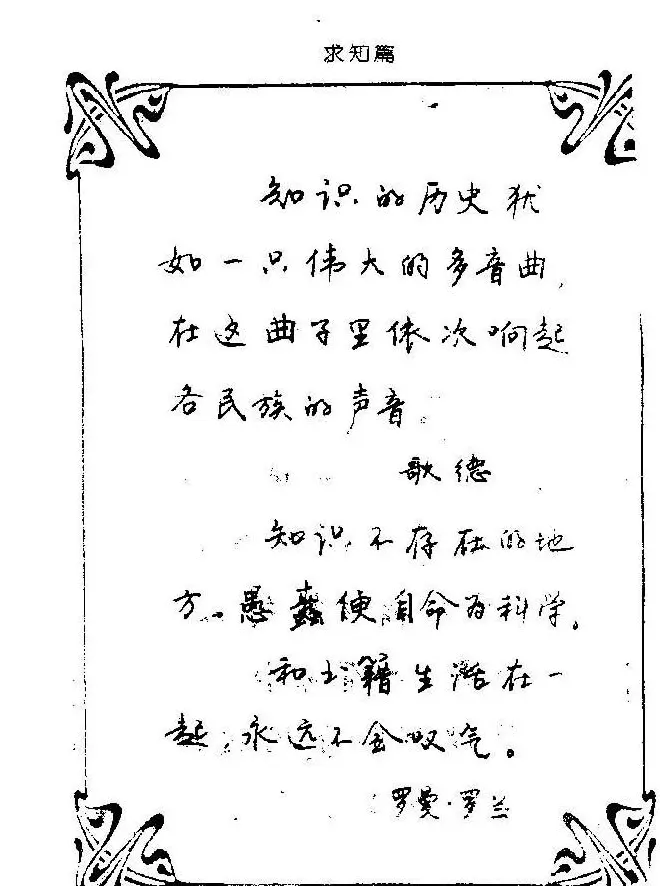 求知篇
知识的历史犹
如一只伟大的多音曲,
在这曲子里依次响起
各民族的声音。
歌德
知识不存在的地
方、愚蠢便自命为科学。
和书籍生活在一
起,永远不会叹气。
罗曼·罗兰